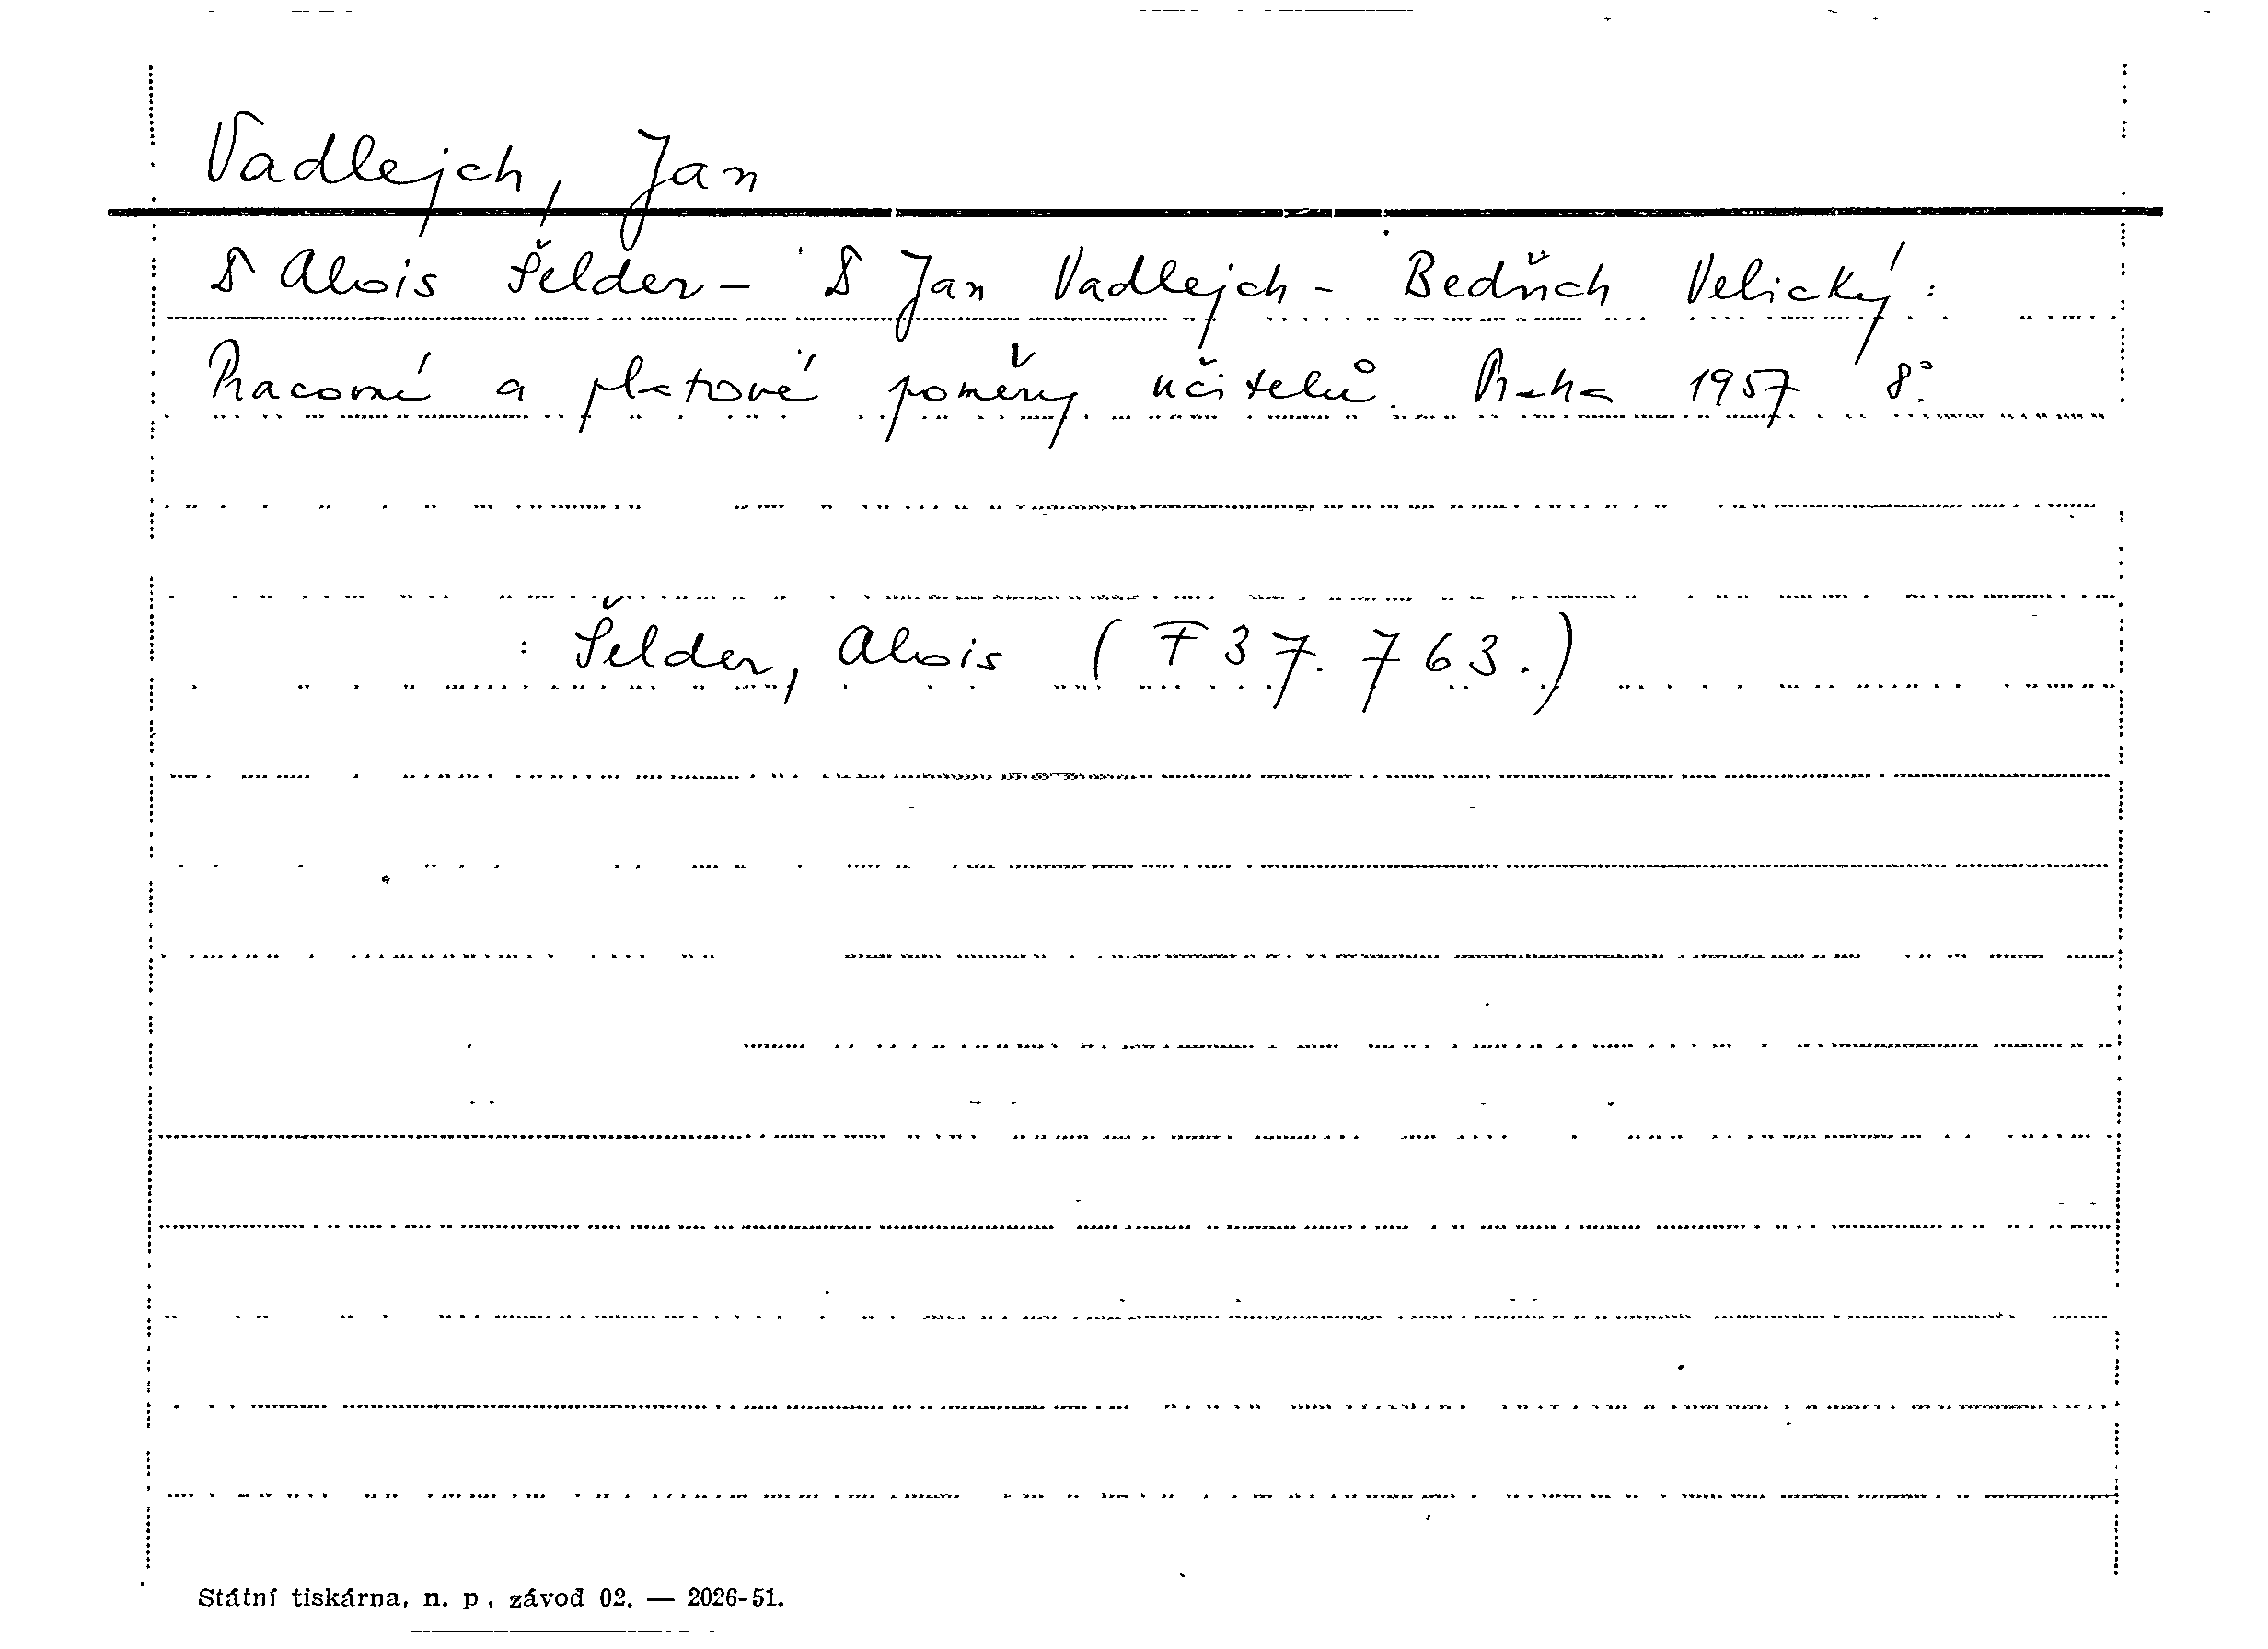 Vadlejch, Jan
Dr Alois Šelder – Dr Jan Vadlejch – Bedřich Velický:
Pracovní a platové poměry učitelů. Praha 1957 8°.
: Šelder, Alois (F 37.763.)
Státní tiskárna, n. p., závod 02. — 2026-51.